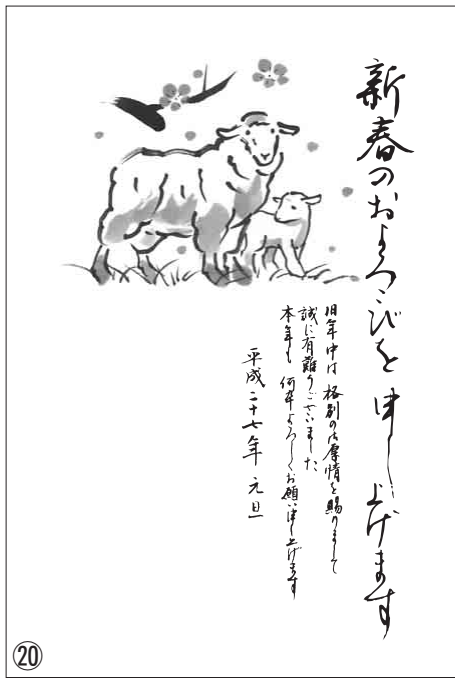 新春のおよろこびを申し上げます
旧年中は格別の御厚情を賜りまして
誠に有難うございました
本年も何卒よろしくお願い申し上げます
平成二十七年 元旦
⑳